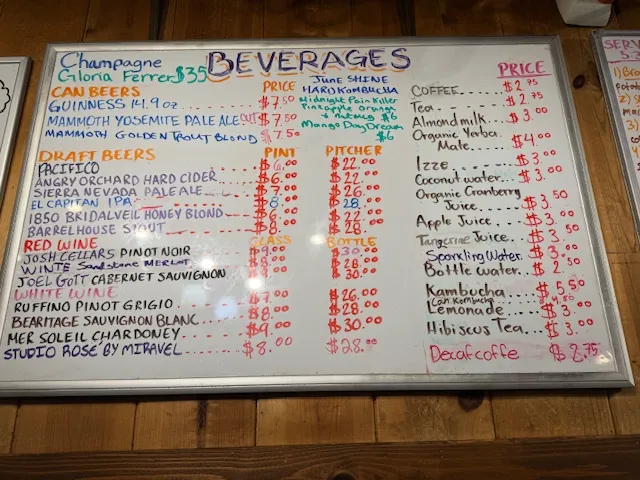 Champagne
Gloria Ferrer $35
BEVERAGES
CAN BEERS PRICE
GUINNESS 14.9oz $7.50
MAMMOTH YOSEMITE PALE ALE OUT $7.50
MAMMOTH GOLDEN TROUT BLOND $7.50
JUNE SHINE
HARD KOMBUCHA
Midnight Pain Killer
Pineapple orange
nutmeg $6
Mango Day Dream
$6
DRAFT BEERS PINT PITCHER
PACIFICO $6.00 $22.00
ANGRY ORCHARD HARD CIDER $6.00 $22.00
SIERRA NEVADA PALE ALE $7.00 $26.00
EL CAPITAN IPA $8. $28.
1850 BRIDALVEIL HONEY BLOND $6.00 $22.00
BARREL HOUSE STOUT $8. $28.
RED WINE GLASS BOTTLE
JOSH CELLARS PINOT NOIR $9.00 $30.00
WINTE Sandstone MERLOT $28.00
JOEL GOTT CABERNET SAUVIGNON $9.00 $30.00
WHITE WINE
RUFFINO PINOT GRIGIO $7.00 $26.00
BEARITAGE SAUVIGNON BLANC $8.00 $28.00
MER SOLEIL CHARDONEY $9.00 $30.00
STUDIO ROSE BY MIRAVEL $8.00 $28.00
PRICE
COFFEE $2.75
Tea $2.75
Almond milk $3.00
Organic Yerba
Mate $4.00
Izze $3.00
Coconut water $3.00
Organic Cranberry
Juice $3.50
Apple Juice $3.00
Tangerine Juice $3.00
Sparkling Water $3.00
Bottle water $2.50
Kambucha $5.50
Can Kombucha
Lemonade $3.00
Hibiscus Tea $3.00
Decaf coffe $2.75